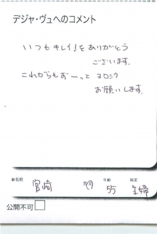 デジャ・ヴュへのコメント
いつもキレイをありがとう
ございます。
これからもずーっと ヨロシク
お願いします。
お名前
年齢
職業
宮崎
才
主婦
公開不可